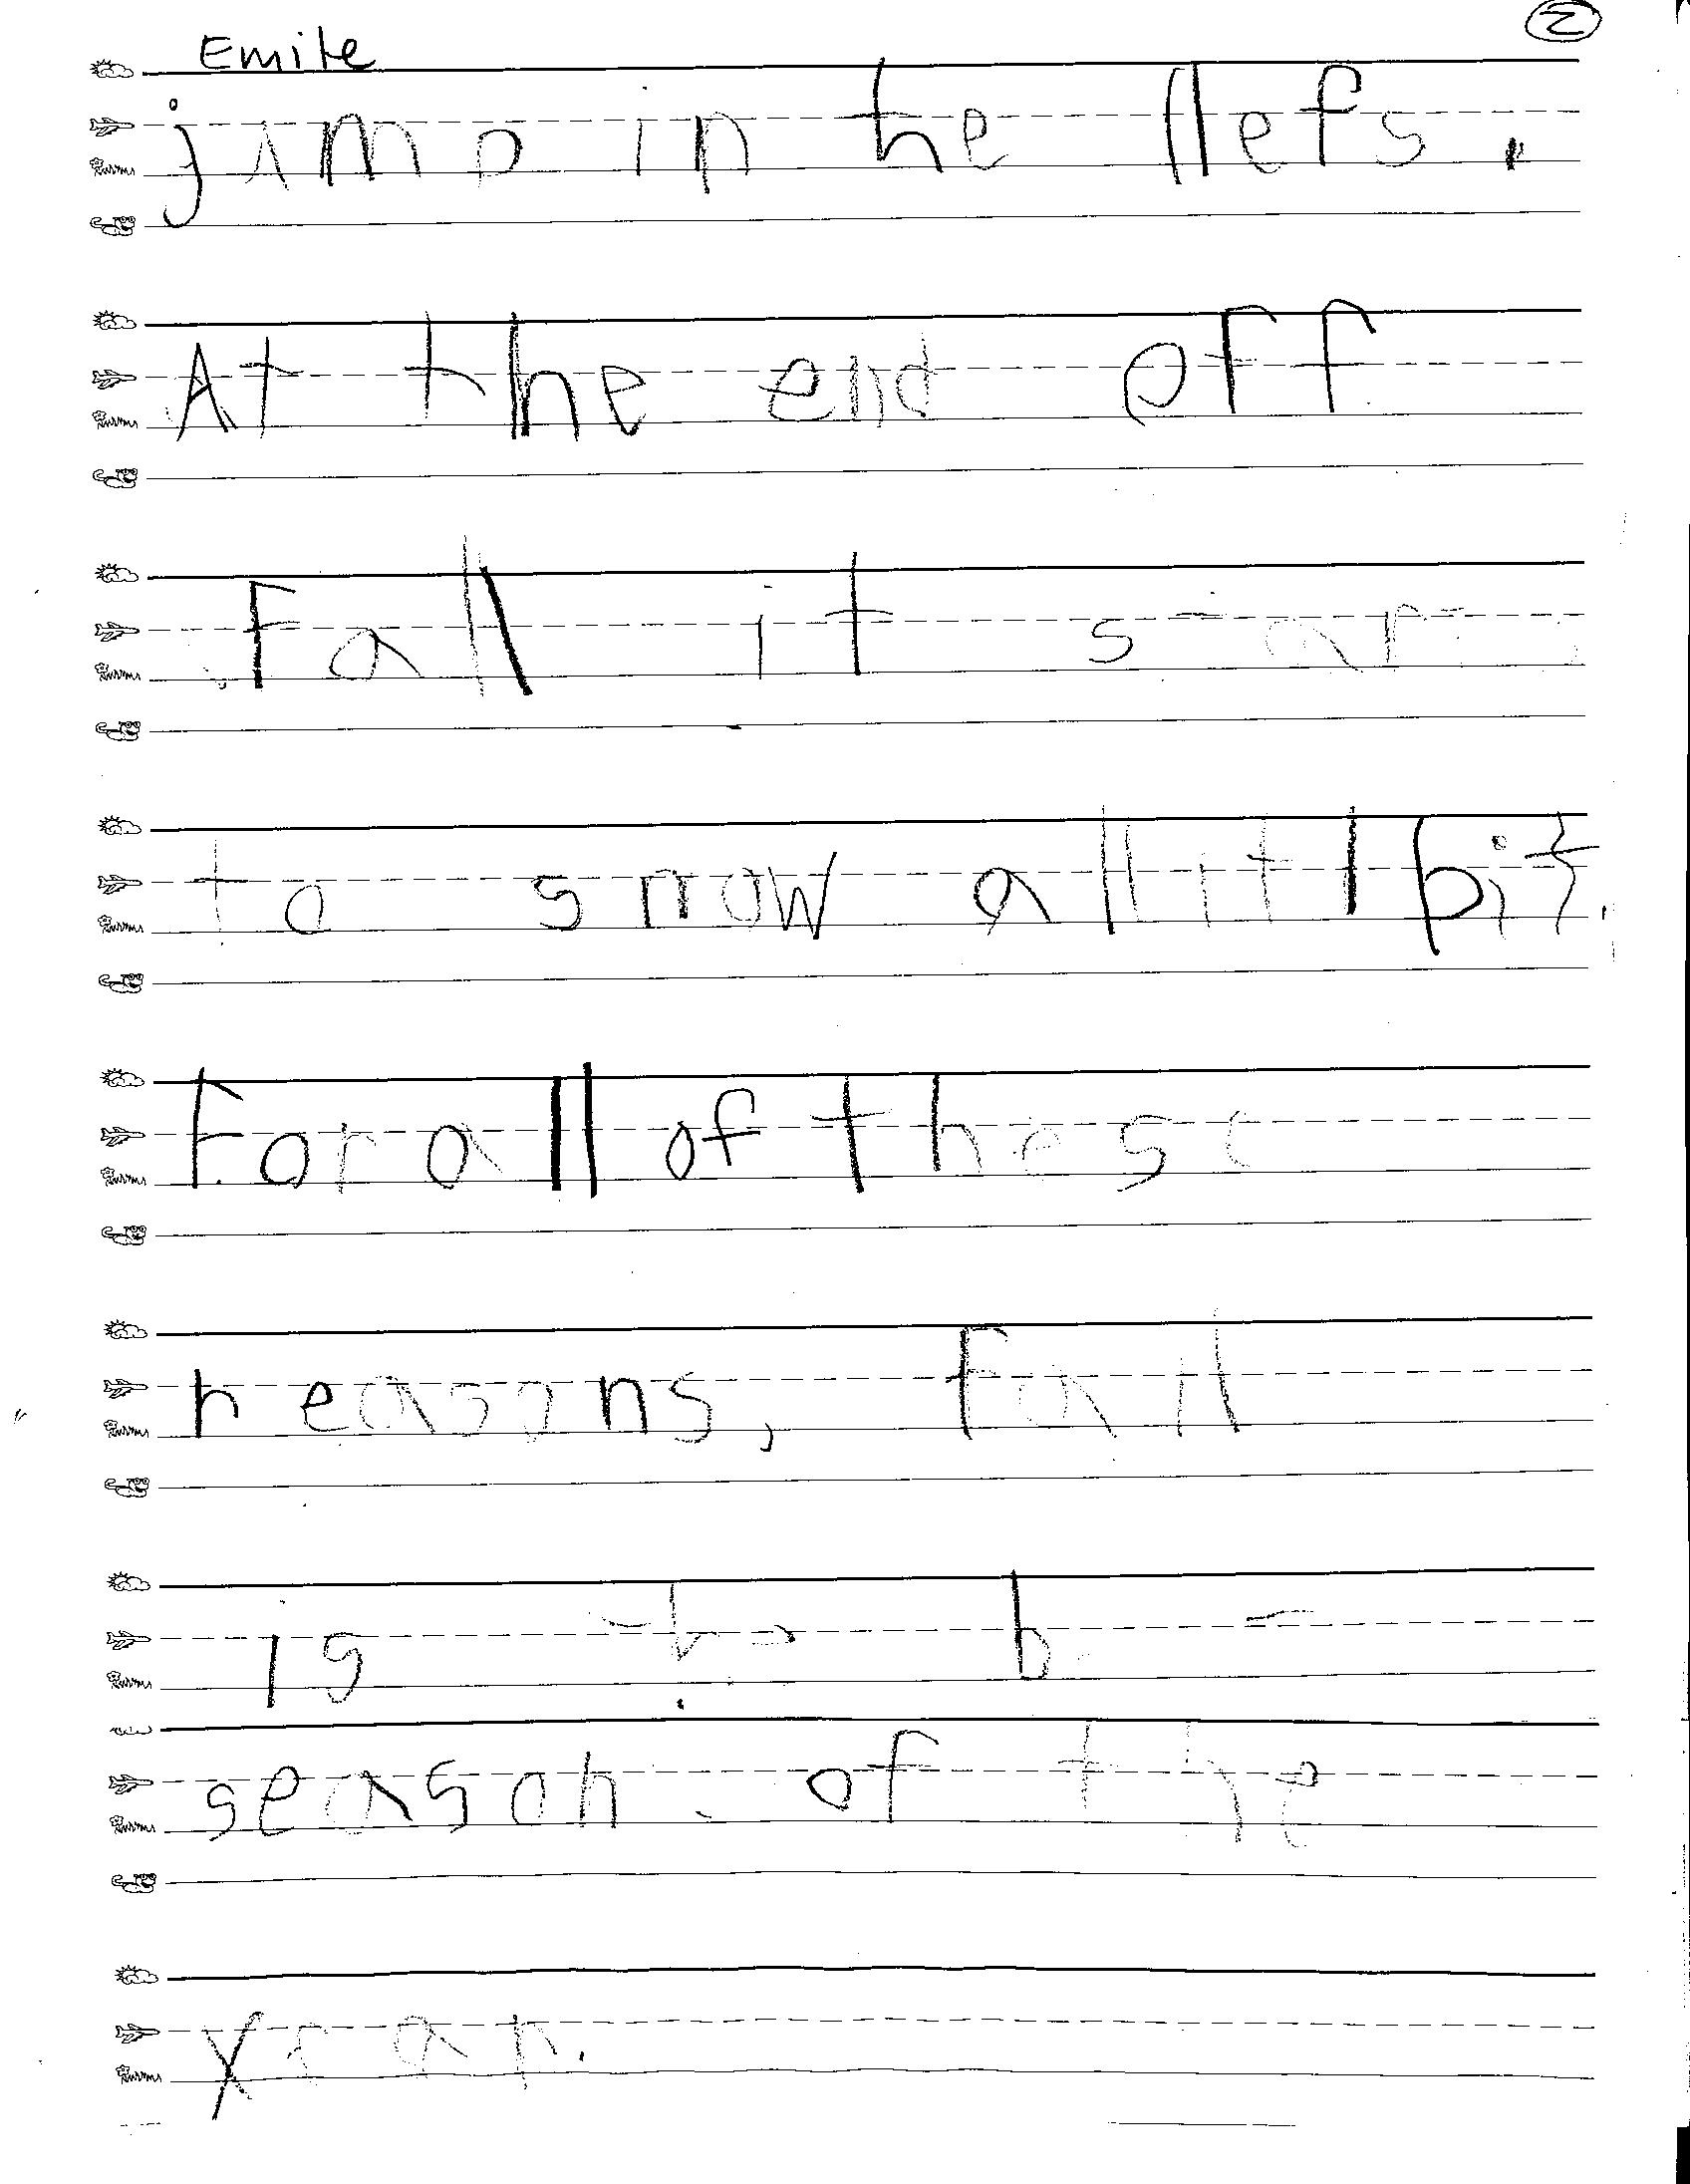 Emile
2
jump in the llefs.
At the end off
Fall it star
to snow a llitl bit.
For all of these
reasons, Fall
is the b
season of the
year.